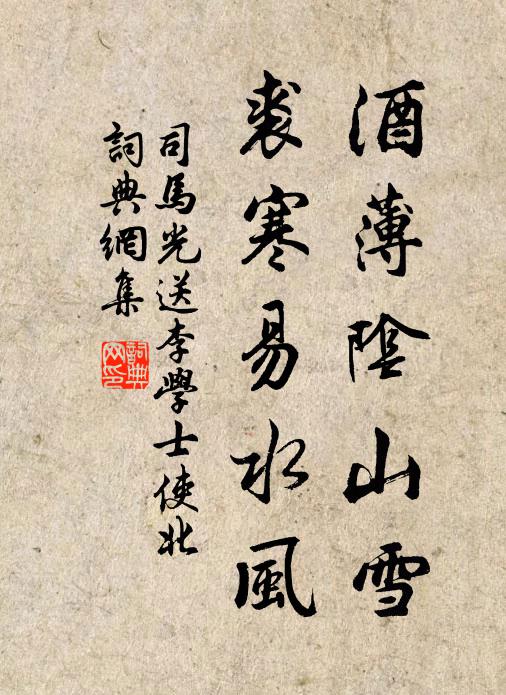 酒薄陰山雪
裘寒易水風
司馬光送李學士使北
詞典網集
詞典
网印